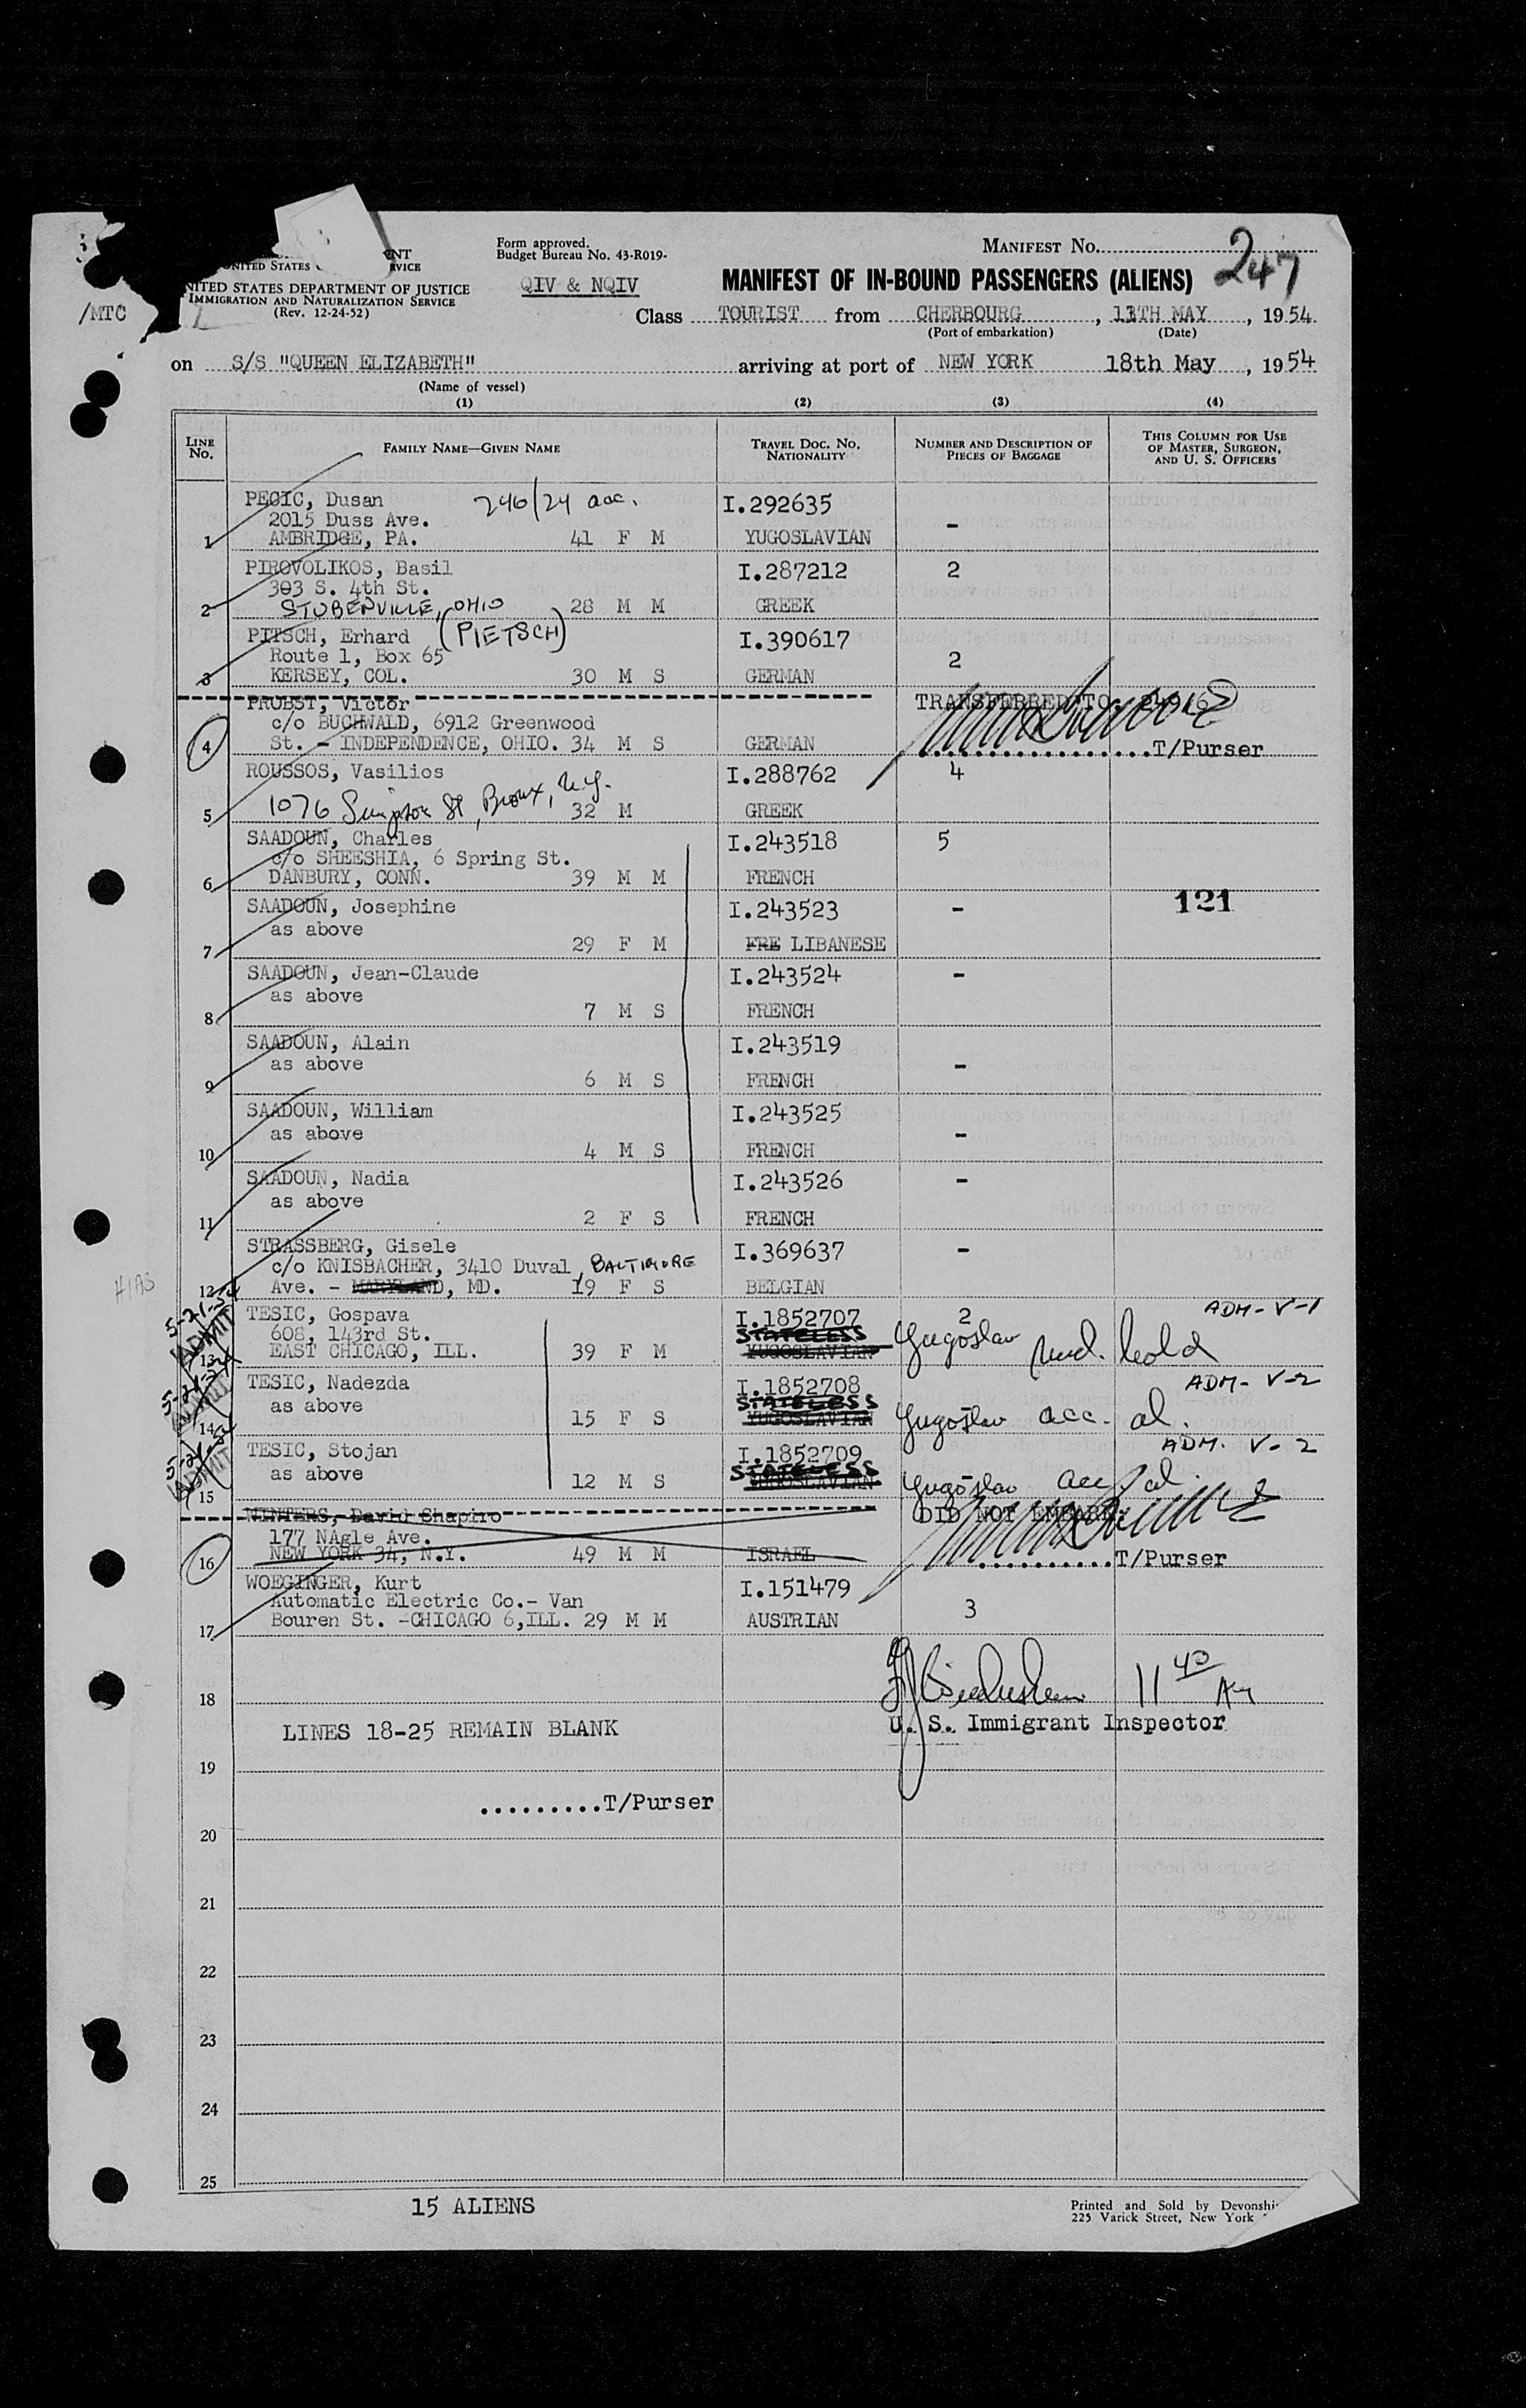 UNITED STATES
ENT
RVICE
UNITED STATES DEPARTMENT OF JUSTICE
IMMIGRATION AND NATURALIZATION SERVICE
(Rev. 12-24-52)
/MTC
Form approved.
Budget Bureau No. 43-R019-
QIV & NQIV
MANIFEST No.
247
MANIFEST OF IN-BOUND PASSENGERS (ALIENS)
Class TOURIST from CHERBOURG, 13TH MAY, 1954
(Port of embarkation) (Date)
on S/S "QUEEN ELIZABETH" arriving at port of NEW YORK 18th May, 1954
(Name of vessel)
(1) (2) (3) (4)
LINE No.
FAMILY NAME—GIVEN NAME
TRAVEL DOC. No. NATIONALITY
NUMBER AND DESCRIPTION OF PIECES OF BAGGAGE
THIS COLUMN FOR USE OF MASTER, SURGEON, AND U. S. OFFICERS
PECIC, Dusan 246/24 acc. I.292635
2015 Duss Ave. -
1 AMBRIDGE, PA. 41 F M YUGOSLAVIAN
PIROVOLIKOS, Basil I.287212 2
303 S. 4th St.
2 STUBERVILLE, OHIO 28 M M GREEK
PITSCH, Erhard (PIETSCH) I.390617
Route 1, Box 65 2
3 KERSEY, COL. 30 M S GERMAN
PROBST, Victor TRANSFERRED TO
c/o BUCHWALD, 6912 Greenwood
4 St. - INDEPENDENCE, OHIO. 34 M S GERMAN ..................T/Purser
ROUSSOS, Vasilios I.288762 4
5 1076 Simpson St, Bronx, N.Y. 32 M GREEK
SAADOUN, Charles I.243518 5
c/o SHEESHIA, 6 Spring St.
6 DANBURY, CONN. 39 M M FRENCH
SAADOUN, Josephine I.243523 - 121
as above
7 29 F M FRE LIBANESE
SAADOUN, Jean-Claude I.243524 -
as above
8 7 M S FRENCH
SAADOUN, Alain I.243519
as above -
9 6 M S FRENCH
SAADOUN, William I.243525
as above -
10 4 M S FRENCH
SAADOUN, Nadia I.243526 -
as above
11 2 F S FRENCH
STRASSBERG, Gisele I.369637 -
c/o KNISBACHER, 3410 Duval, BALTIMORE
HIAS
12 Ave. - MARYLAND, MD. 19 F S BELGIAN
TESIC, Gospava I.1852707 2 ADM - V-1
5-21-54 608, 143rd St. STATELESS Yugoslav med. hold
ADMIT
13 EAST CHICAGO, ILL. 39 F M YUGOSLAVIAN
TESIC, Nadezda I.1852708 ADM - V-2
5-21-54 as above STATELESS Yugoslav acc. al.
ADMIT
14 15 F S YUGOSLAVIAN
TESIC, Stojan I.1852709 ADM. V-2
5-21-54 as above STATELESS Yugoslav acc. al.
ADMIT
15 12 M S YUGOSLAVIAN
WINTERS, David Shapiro DID NOT EMBARK
177 NAgle Ave.
16 NEW YORK 34, N.Y. 49 M M ISRAEL ...........T/Purser
WOEGINGER, Kurt I.151479
Automatic Electric Co.- Van 3
17 Bouren St. -CHICAGO 6,ILL. 29 M M AUSTRIAN
18 11 40 AM
LINES 18-25 REMAIN BLANK U. S. Immigrant Inspector
19
.........T/Purser
20
21
22
23
24
25
15 ALIENS
Printed and Sold by Devonshi
225 Varick Street, New York